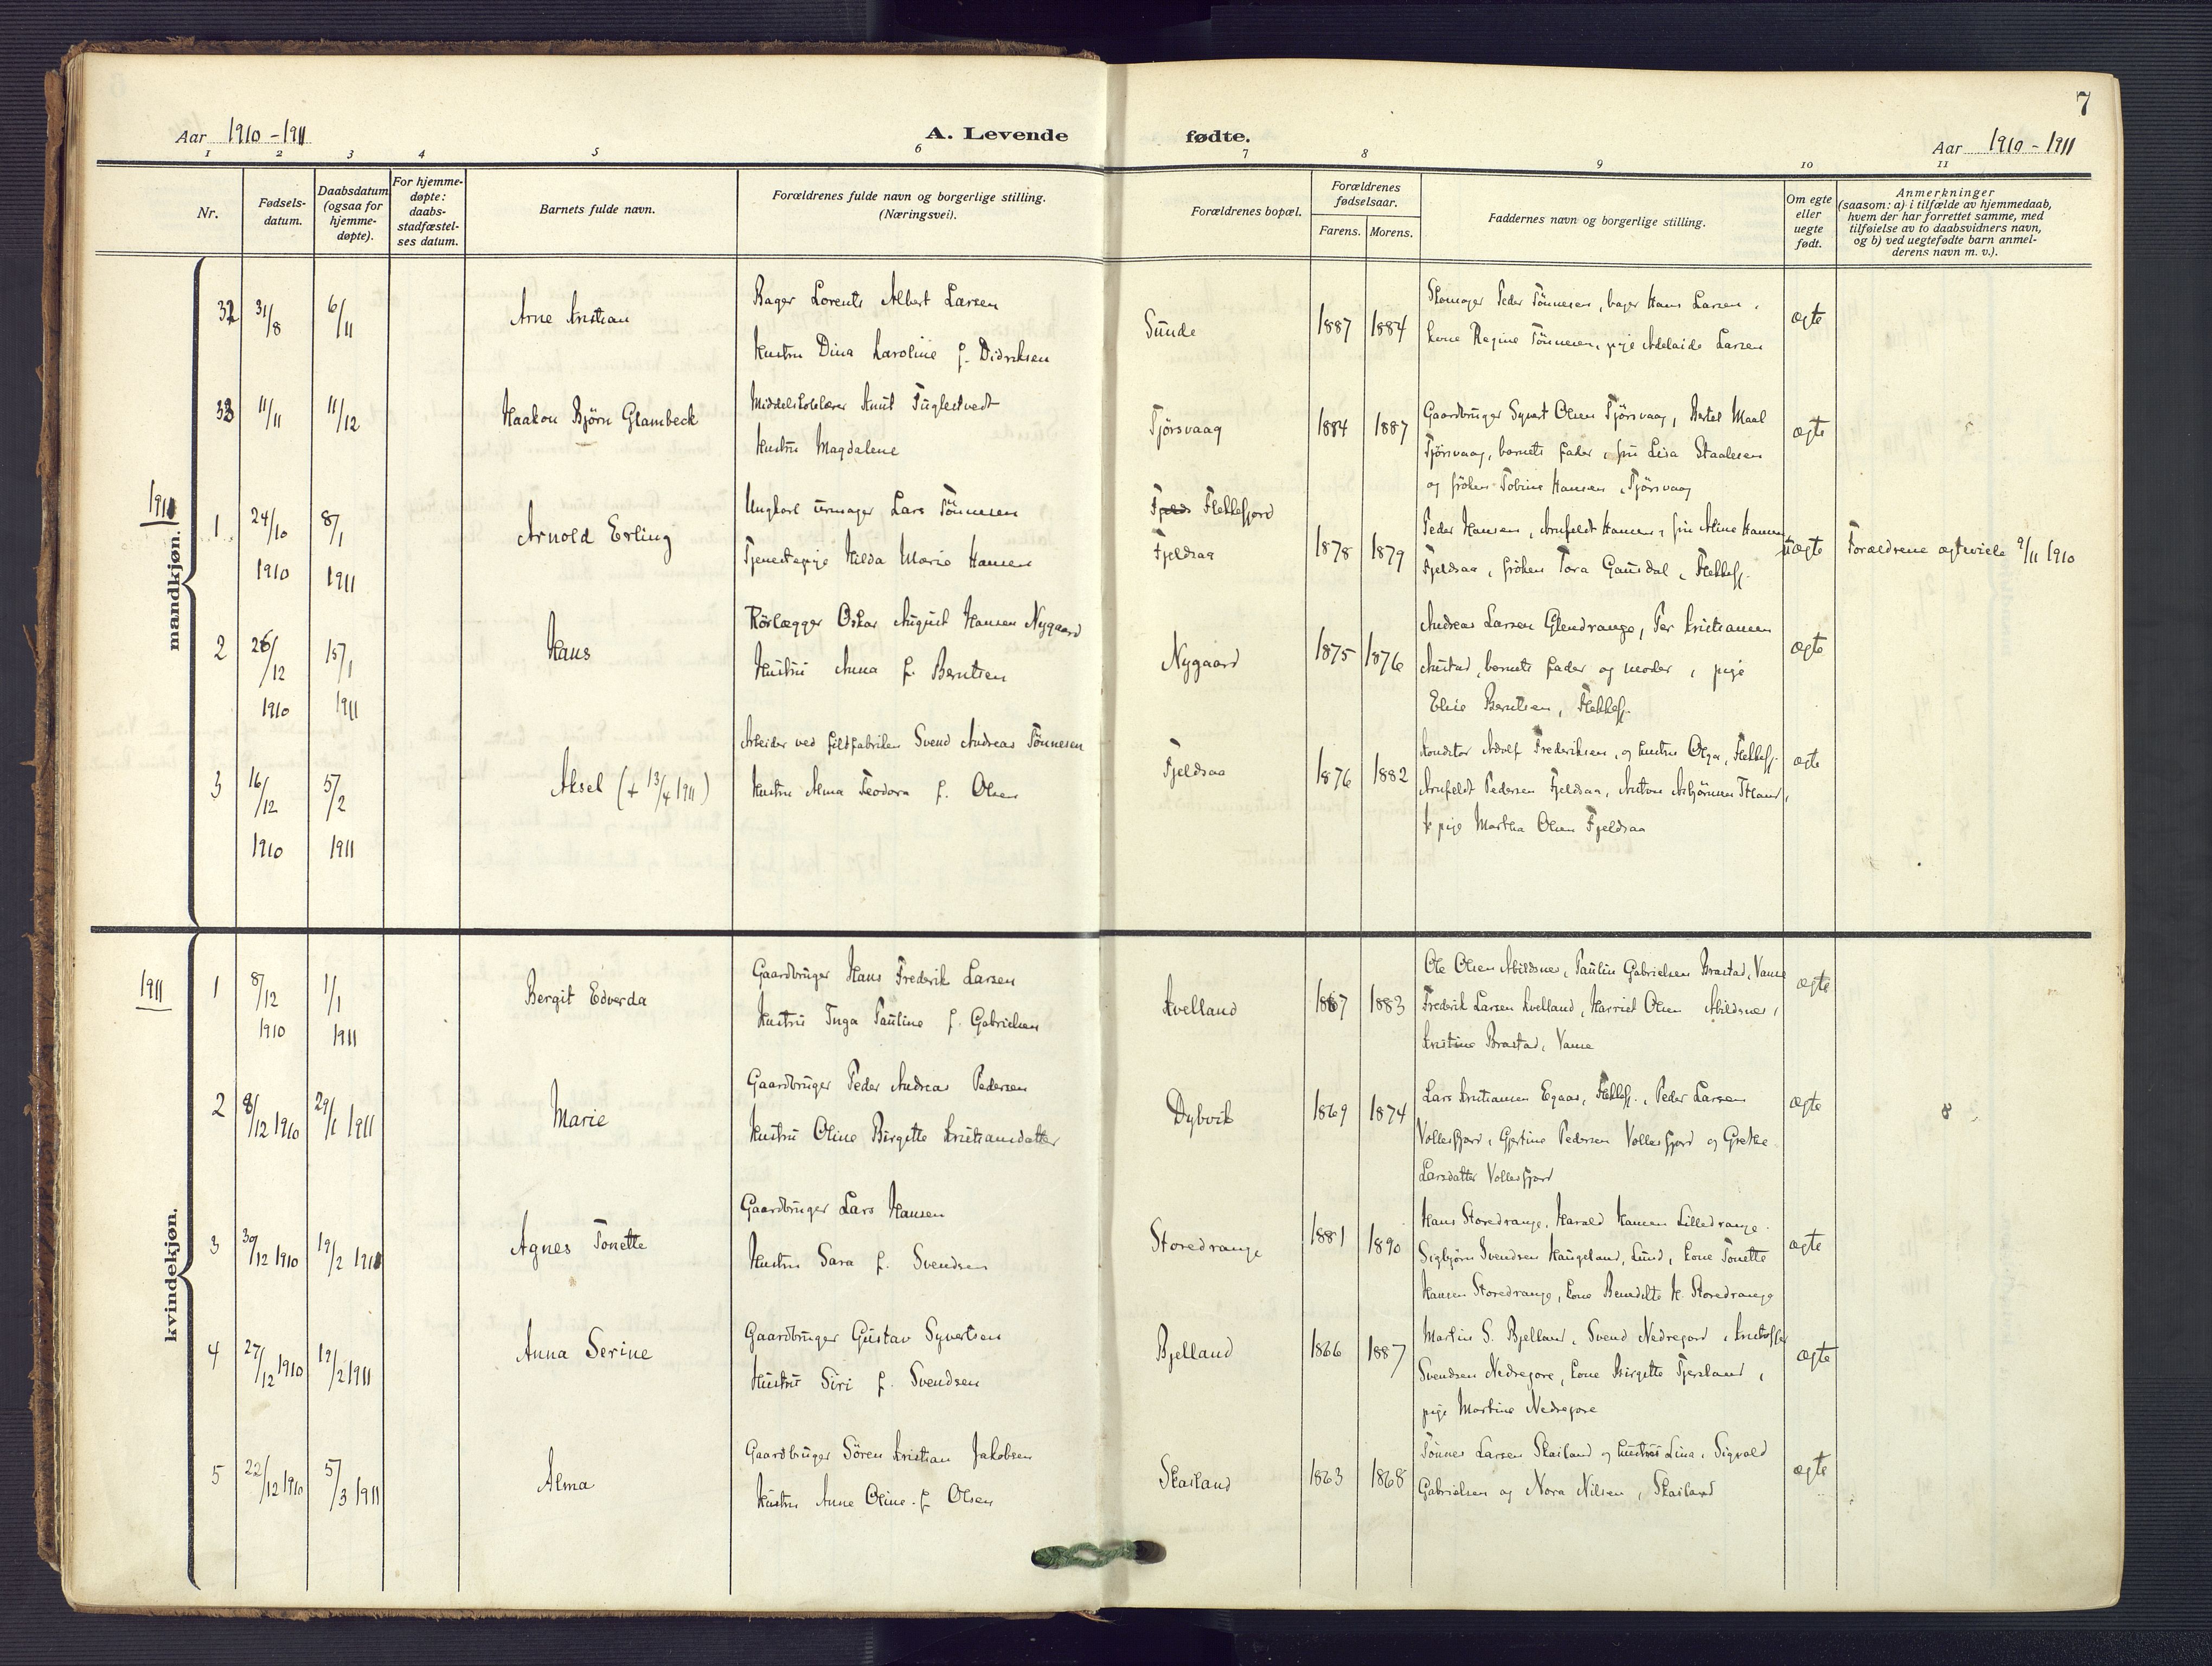 7
Aar 1910 - 1911
A. Levende fødte.
Aar 1910 - 1911
1 2 3 4 5 6 7 8 9 10 11
Nr.
Fødsels-
datum.
Daabsdatum
(ogsaa for
hjemme-
døpte).
For hjemme-
døpte:
daabs-
stadfæstel-
ses datum.
Barnets fulde navn.
Forældrenes fulde navn og borgerlige stilling.
(Næringsvei).
Forældrenes bopæl.
Forældrenes
fødselsaar.
Farens. Morens.
Faddernes navn og borgerlige stilling.
Om egte
eller
uegte
født.
Anmerkninger
(saasom: a) i tilfælde av hjemmedaab,
hvem der har forrettet samme, med
tilføielse av to daabsvidners navn,
og b) ved uegtefødte barn anmel-
derens navn m. v.).
mandkjøn.
32 31/8 6/11 Arne Kristian
Bager Lorents Albert Larsen
Hustru Dina Karoline f. Didriksen
Sunde 1887 1884
Skomager Peder Tönnesen, bager Hans Larsen,
kone Regine Tönnesen, pige Adelaide Larsen
ægte
33 11/11 11/12 Haakon Björn Glambeck
Middelskolelærer Knut Fuglestvedt
Hustru Magdalene
Tjörsvaag 1884 1887
Gaardbruger Syvert Olsen Tjörsvaag, Bertel Maal
Tjörsvaag, barnets fader, fru Lisa Staalesen
og fröken Tobine Hansen, Tjörsvaag
ægte
1911
1 24/10 1910 8/1 1911 Arnold Erling
Ungkarl urmager Lars Tönnesen
Tjenestepige Hilda Marie Hansen
Flekkefjord
Fjeldsaa 1878 1879
Peder Hansen, Arnfeldt Hansen, fru Aline Hansen
Fjeldsaa, fröken Tora Gausdal, Flekkefj.
uægte
Forældrene ægteviede 9/11 1910
2 26/12 1910 15/1 1911 Hans
Rörlægger Oskar August Hansen Nygaard
Hustru Anna f. Berntsen
Nygaard 1875 1876
Andreas Larsen Glendrange, Per Kristiansen
Austad, barnets fader og moder, pige
Elise Berntsen, Flekkefj.
ægte
3 16/12 1910 5/2 1911 Aksel (+ 13/4 1911)
Arbeider ved filtfabriken Svend Andreas Tönnesen
Hustru Alma Teodora f. Olsen
Fjeldsaa 1876 1882
Konditor Adolf Frederiksen, og hustru Olga, Flekkefj.
Arnfeldt Pedersen Fjeldsaa, Anton Asbjörnsen
pige Martha Olsen Fjeldsaa
ægte
kvindekjøn.
1911
1 8/12 1910 1/1 1911 Bergit Edverda
Gaardbruger Hans Frederik Larsen
Hustru Inga Pauline f. Gabrielsen
Kvelland 1867 1883
Ole Olsen Abildsnes, Paulin Gabrielsen Brastad, Vanse
Fredrik Larsen Kvelland, Harriet Olsen Abildsnes,
Kristine Brastad, Vanse
ægte
2 8/12 1910 29/1 1911 Marie
Gaardbruger Peder Andreas Pedersen
Hustru Oline Birgitte Kristiansdatter
Dybvik 1869 1874
Lars Kristiansen Egaas, Flekkefj., Peder Larsen
Vollesfjord, Gjertine Pedersen Vollesfjord og Grethe
Larsdatter Vollesfjord
ægte
3 30/12 1910 19/2 1911 Agnes Tonette
Gaardbruger Lars Hansen
Hustru Sara f. Svendsen
Storedrange 1881 1890
Hans Storedrange, Harald Hansen Lilledrange,
Sigbjörn Svendsen Haugeland, Lund, kone Tonette
Hansen Storedrange, kone Benedikte H. Storedrange
ægte
4 27/12 1910 19/2 1911 Anna Serine
Gaardbruger Gustav Syvertsen
Hustru Siri f. Svendsen
Bjelland 1866 1887
Martin S. Bjelland, Svend Nedregord, Kristoffer
Svendsen Nedregore, kone Birgitte Tjersland,
pige Martine Nedregore
ægte
5 22/12 1910 5/3 1911 Alma
Gaardbruger Sören Kristian Jakobsen
Hustru Anne Oline f. Olsen
Skailand 1863 1868
Tönnes Larsen Skailand og hustru Lina, Sigvald
Gabrielsen og Nora Nilsen, Skailand
ægte